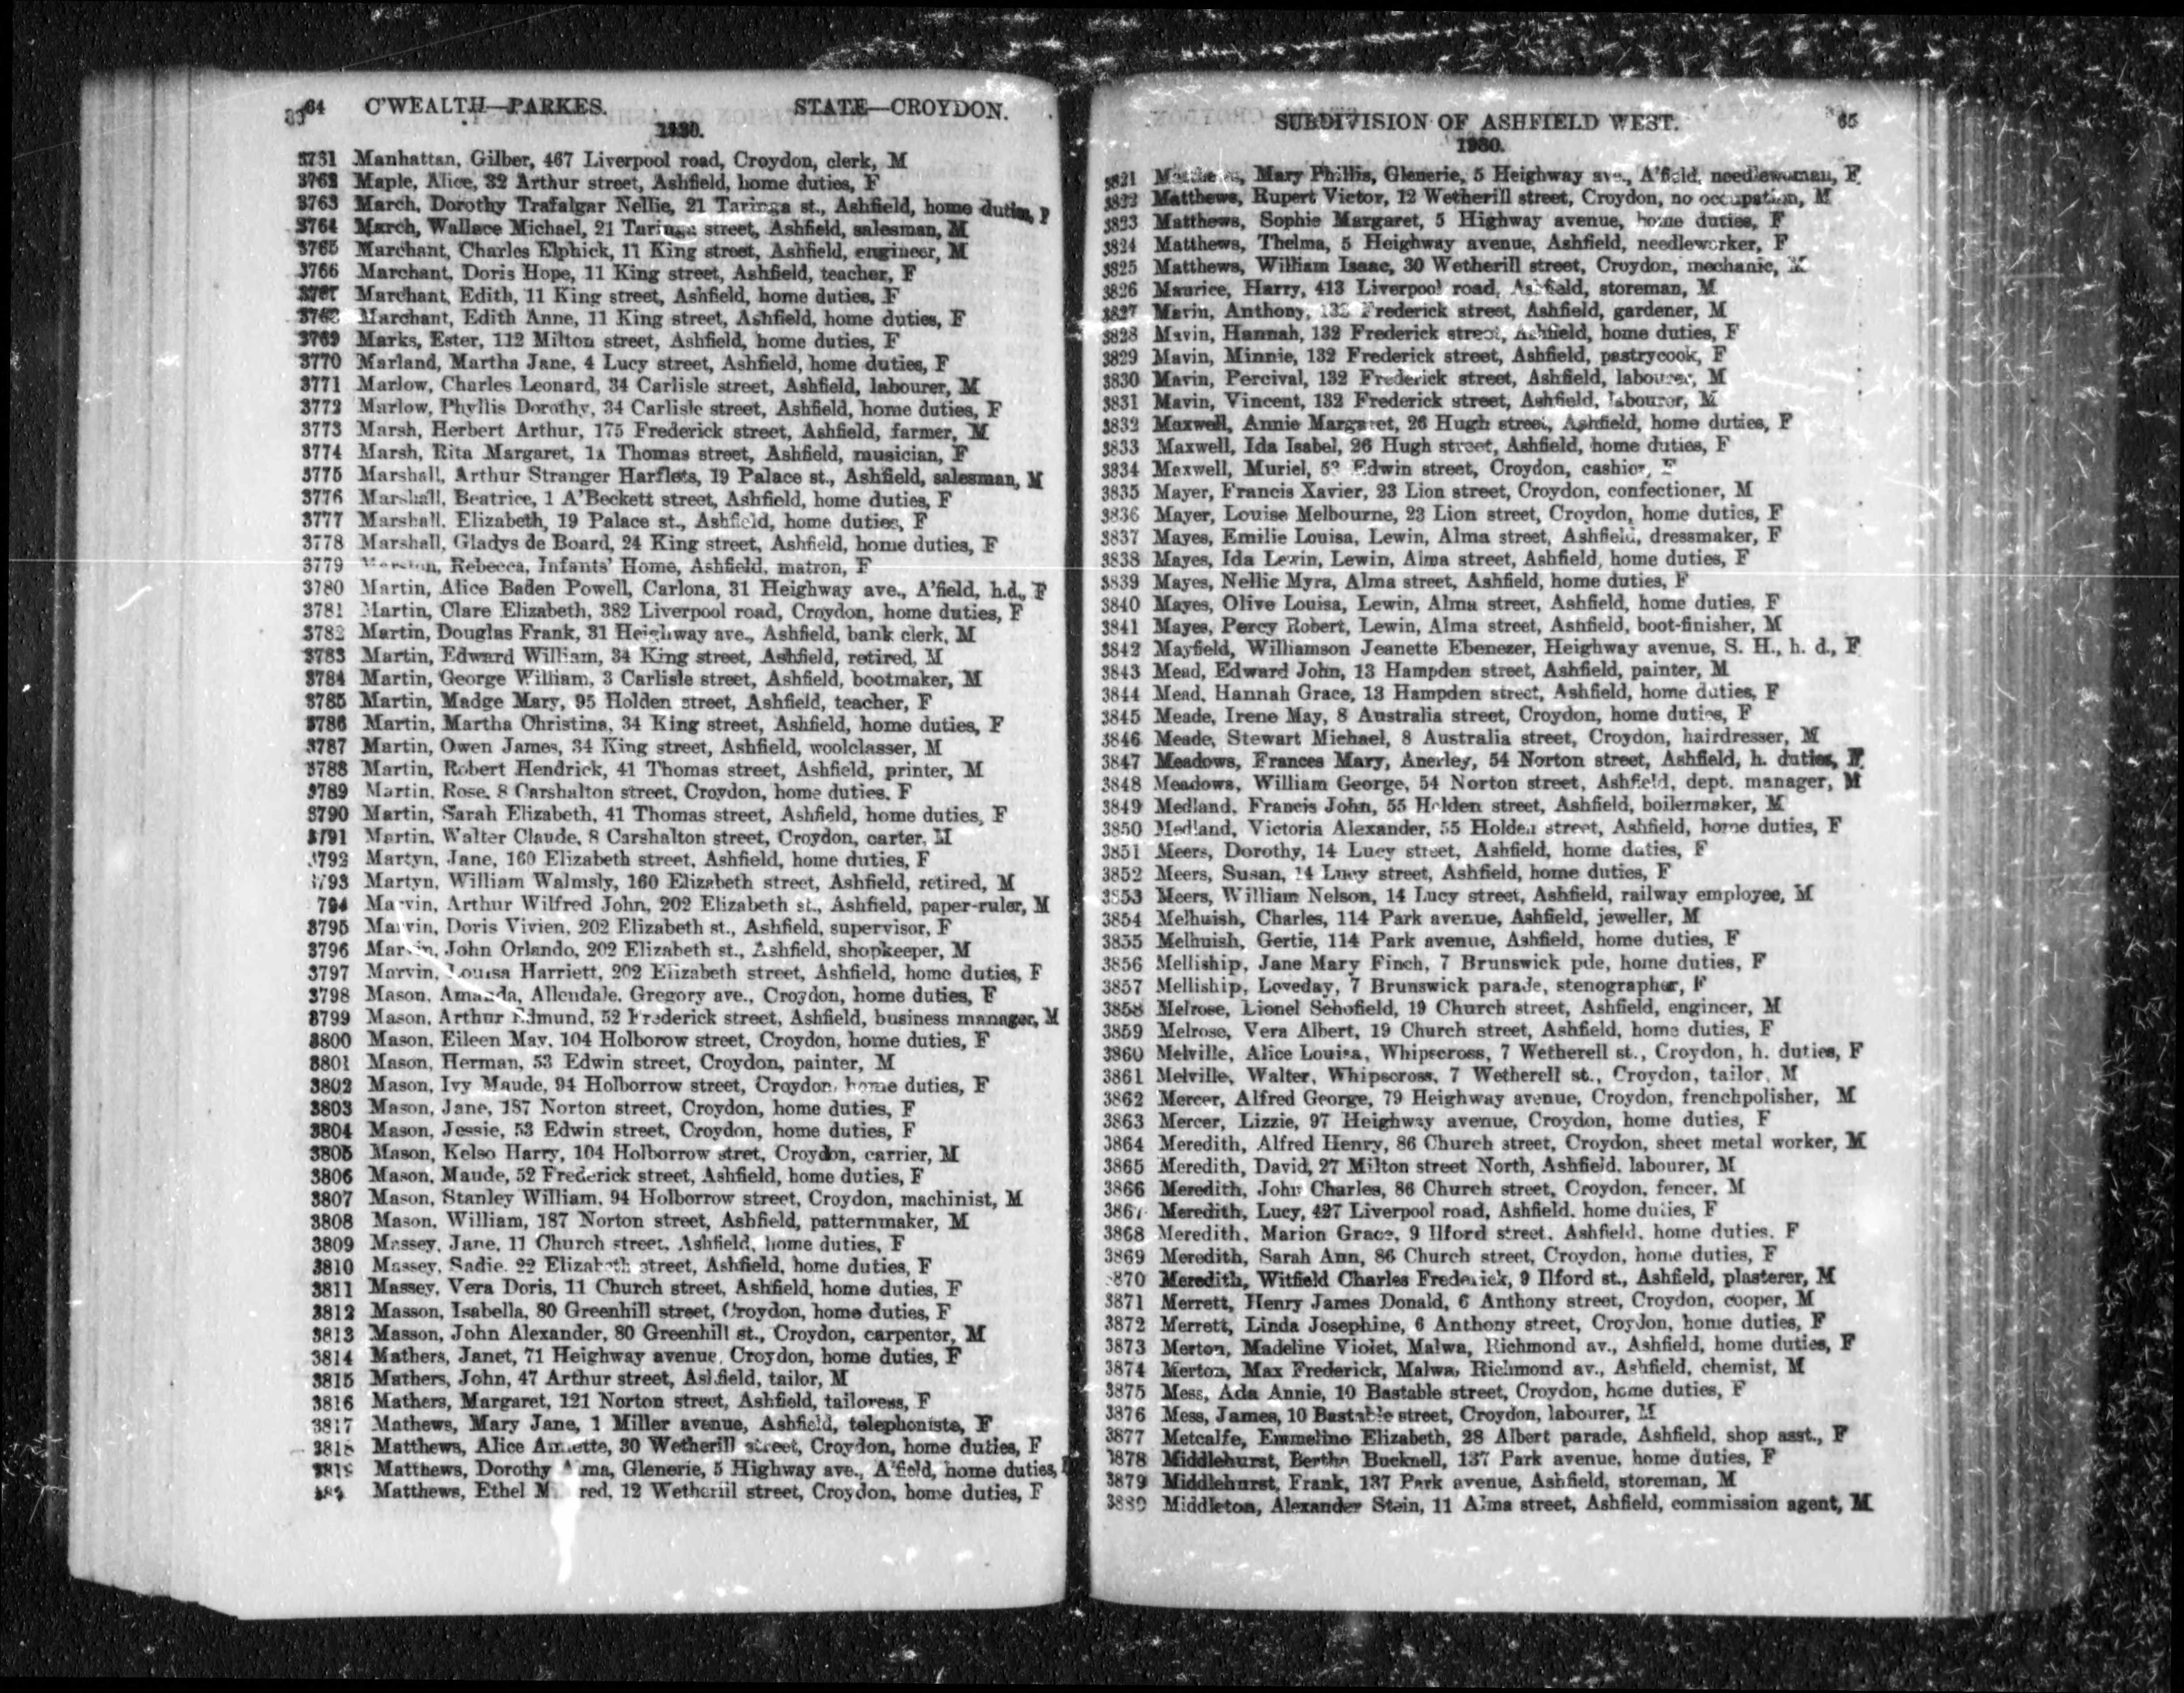 64 C'WEALTH—PARKES. STATE—CROYDON.
1930.
3761 Manhattan, Gilber, 467 Liverpool road, Croydon, clerk, M
3762 Maple, Alice, 32 Arthur street, Ashfield, home duties, F
3763 March, Dorothy Trafalgar Nellie, 21 Taringa st., Ashfield, home duties, F
3764 March, Wallace Michael, 21 Taringa street, Ashfield, salesman, M
3765 Marchant, Charles Elphick, 11 King street, Ashfield, engineer, M
3766 Marchant, Doris Hope, 11 King street, Ashfield, teacher, F
3767 Marchant, Edith, 11 King street, Ashfield, home duties, F
3768 Marchant, Edith Anne, 11 King street, Ashfield, home duties, F
3769 Marks, Ester, 112 Milton street, Ashfield, home duties, F
3770 Marland, Martha Jane, 4 Lucy street, Ashfield, home duties, F
3771 Marlow, Charles Leonard, 34 Carlisle street, Ashfield, labourer, M
3772 Marlow, Phyllis Dorothy, 34 Carlisle street, Ashfield, home duties, F
3773 Marsh, Herbert Arthur, 175 Frederick street, Ashfield, farmer, M
3774 Marsh, Rita Margaret, 1A Thomas street, Ashfield, musician, F
3775 Marshall, Arthur Stranger Harflets, 19 Palace st., Ashfield, salesman, M
3776 Marshall, Beatrice, 1 A'Beckett street, Ashfield, home duties, F
3777 Marshall, Elizabeth, 19 Palace st., Ashfield, home duties, F
3778 Marshall, Gladys de Board, 24 King street, Ashfield, home duties, F
3779 Rebecca, Infants' Home, Ashfield, matron, F
3780 Martin, Alice Baden Powell, Carlona, 31 Heighway ave., A'field, h.d., F
3781 Martin, Clare Elizabeth, 382 Liverpool road, Croydon, home duties, F
3782 Martin, Douglas Frank, 31 Heighway ave., Ashfield, bank clerk, M
3783 Martin, Edward William, 34 King street, Ashfield, retired, M
3784 Martin, George William, 3 Carlisle street, Ashfield, bootmaker, M
3785 Martin, Madge Mary, 95 Holden street, Ashfield, teacher, F
3786 Martin, Martha Christina, 34 King street, Ashfield, home duties, F
3787 Martin, Owen James, 34 King street, Ashfield, woolclasser, M
3788 Martin, Robert Hendrick, 41 Thomas street, Ashfield, printer, M
3789 Martin, Rose, 8 Carshalton street, Croydon, home duties, F
3790 Martin, Sarah Elizabeth, 41 Thomas street, Ashfield, home duties, F
3791 Martin, Walter Claude, 8 Carshalton street, Croydon, carter, M
3792 Martyn, Jane, 160 Elizabeth street, Ashfield, home duties, F
3793 Martyn, William Walmsly, 160 Elizabeth street, Ashfield, retired, M
794 Marvin, Arthur Wilfred John, 202 Elizabeth st., Ashfield, paper-ruler, M
3795 Marvin, Doris Vivien, 202 Elizabeth st., Ashfield, supervisor, F
3796 Marvin, John Orlando, 202 Elizabeth st., Ashfield, shopkeeper, M
3797 Marvin, Louisa Harriett, 202 Elizabeth street, Ashfield, home duties, F
3798 Mason, Amanda, Allendale, Gregory ave., Croydon, home duties, F
3799 Mason, Arthur Edmund, 52 Frederick street, Ashfield, business manager, M
3800 Mason, Eileen May, 104 Holborow street, Croydon, home duties, F
3801 Mason, Herman, 53 Edwin street, Croydon, painter, M
3802 Mason, Ivy Maude, 94 Holborrow street, Croydon, home duties, F
3803 Mason, Jane, 187 Norton street, Croydon, home duties, F
3804 Mason, Jessie, 53 Edwin street, Croydon, home duties, F
3805 Mason, Kelso Harry, 104 Holborrow stret, Croydon, carrier, M
3806 Mason, Maude, 52 Frederick street, Ashfield, home duties, F
3807 Mason, Stanley William, 94 Holborrow street, Croydon, machinist, M
3808 Mason, William, 187 Norton street, Ashfield, patternmaker, M
3809 Massey, Jane, 11 Church street, Ashfield, home duties, F
3810 Massey, Sadie, 22 Elizabeth street, Ashfield, home duties, F
3811 Massey, Vera Doris, 11 Church street, Ashfield, home duties, F
3812 Masson, Isabella, 80 Greenhill street, Croydon, home duties, F
3813 Masson, John Alexander, 80 Greenhill st., Croydon, carpenter, M
3814 Mathers, Janet, 71 Heighway avenue, Croydon, home duties, F
3815 Mathers, John, 47 Arthur street, Ashfield, tailor, M
3816 Mathers, Margaret, 121 Norton street, Ashfield, tailoress, F
3817 Mathews, Mary Jane, 1 Miller avenue, Ashfield, telephoniste, F
3818 Matthews, Alice Annette, 30 Wetherill street, Croydon, home duties, F
3819 Matthews, Dorothy Glenerie, 5 Highway ave., A'field, home duties,
Matthews, Ethel 12 Wetherill street, Croydon, home duties, F
SUBDIVISION OF ASHFIELD WEST. 65
1930.
3821 Matthews, Mary Phillis, Glenerie, 5 Heighway ave., A'field, needlewoman, F
3822 Matthews, Rupert Victor, 12 Wetherill street, Croydon, no occupation, M
3823 Matthews, Sophie Margaret, 5 Highway avenue, home duties, F
3824 Matthews, Thelma, 5 Heighway avenue, Ashfield, needleworker, F
3825 Matthews, William Isaac, 30 Wetherill street, Croydon, mechanic, M
3826 Maurice, Harry, 413 Liverpool road, Ashfield, storeman, M
3827 Mavin, Anthony, 132 Frederick street, Ashfield, gardener, M
3828 Mavin, Hannah, 132 Frederick street, Ashfield, home duties, F
3829 Mavin, Minnie, 132 Frederick street, Ashfield, pastrycook, F
3830 Mavin, Percival, 132 Frederick street, Ashfield, labourer, M
3831 Mavin, Vincent, 132 Frederick street, Ashfield, labourer, M
3832 Maxwell, Annie Margaret, 26 Hugh street, Ashfield, home duties, F
3833 Maxwell, Ida Isabel, 26 Hugh street, Ashfield, home duties, F
3834 Maxwell, Muriel, 53 Edwin street, Croydon, cashier, F
3835 Mayer, Francis Xavier, 23 Lion street, Croydon, confectioner, M
3836 Mayer, Louise Melbourne, 23 Lion street, Croydon, home duties, F
3837 Mayes, Emilie Louisa, Lewin, Alma street, Ashfield, dressmaker, F
3838 Mayes, Ida Lewin, Lewin, Alma street, Ashfield, home duties, F
3839 Mayes, Nellie Myra, Alma street, Ashfield, home duties, F
3840 Mayes, Olive Louisa, Lewin, Alma street, Ashfield, home duties, F
3841 Mayes, Percy Robert, Lewin, Alma street, Ashfield, boot-finisher, M
3842 Mayfield, Williamson Jeanette Ebenezer, Heighway avenue, S. H., h. d., F
3843 Mead, Edward John, 13 Hampden street, Ashfield, painter, M
3844 Mead, Hannah Grace, 13 Hampden street, Ashfield, home duties, F
3845 Meade, Irene May, 8 Australia street, Croydon, home duties, F
3846 Meade, Stewart Michael, 8 Australia street, Croydon, hairdresser, M
3847 Meadows, Frances Mary, Anerley, 54 Norton street, Ashfield, h. duties, F
3848 Meadows, William George, 54 Norton street, Ashfield, dept. manager, M
3849 Medland, Francis John, 55 Holden street, Ashfield, boilermaker, M
3850 Medland, Victoria Alexander, 55 Holden street, Ashfield, home duties, F
3851 Meers, Dorothy, 14 Lucy street, Ashfield, home duties, F
3852 Meers, Susan, 14 Lucy street, Ashfield, home duties, F
3853 Meers, William Nelson, 14 Lucy street, Ashfield, railway employee, M
3854 Melhuish, Charles, 114 Park avenue, Ashfield, jeweller, M
3855 Melhuish, Gertie, 114 Park avenue, Ashfield, home duties, F
3856 Melliship, Jane Mary Finch, 7 Brunswick pde, home duties, F
3857 Melliship, Loveday, 7 Brunswick parade, stenographer, F
3858 Melrose, Lionel Schofield, 19 Church street, Ashfield, engineer, M
3859 Melrose, Vera Albert, 19 Church street, Ashfield, home duties, F
3860 Melville, Alice Louisa, Whipscross, 7 Wetherell st., Croydon, h. duties, F
3861 Melville, Walter, Whipscross, 7 Wetherell st., Croydon, tailor, M
3862 Mercer, Alfred George, 79 Heighway avenue, Croydon, frenchpolisher, M
3863 Mercer, Lizzie, 97 Heighway avenue, Croydon, home duties, F
3864 Meredith, Alfred Henry, 86 Church street, Croydon, sheet metal worker, M
3865 Meredith, David, 27 Milton street North, Ashfield, labourer, M
3866 Meredith, John Charles, 86 Church street, Croydon, fencer, M
3867 Meredith, Lucy, 427 Liverpool road, Ashfield, home duties, F
3868 Meredith, Marion Grace, 9 Ilford street, Ashfield, home duties, F
3869 Meredith, Sarah Ann, 86 Church street, Croydon, home duties, F
3870 Meredith, Witfield Charles Frederick, 9 Ilford st., Ashfield, plasterer, M
3871 Merrett, Henry James Donald, 6 Anthony street, Croydon, cooper, M
3872 Merrett, Linda Josephine, 6 Anthony street, Croydon, home duties, F
3873 Merton, Madeline Violet, Malwa, Richmond av., Ashfield, home duties, F
3874 Merton, Max Frederick, Malwa, Richmond av., Ashfield, chemist, M
3875 Mess, Ada Annie, 10 Bastable street, Croydon, home duties, F
3876 Mess, James, 10 Bastable street, Croydon, labourer, M
3877 Metcalfe, Emmeline Elizabeth, 28 Albert parade, Ashfield, shop asst., F
3878 Middlehurst, Bertha Bucknell, 137 Park avenue, home duties, F
3879 Middlehurst, Frank, 137 Park avenue, Ashfield, storeman, M
3880 Middleton, Alexander Stein, 11 Alma street, Ashfield, commission agent, M